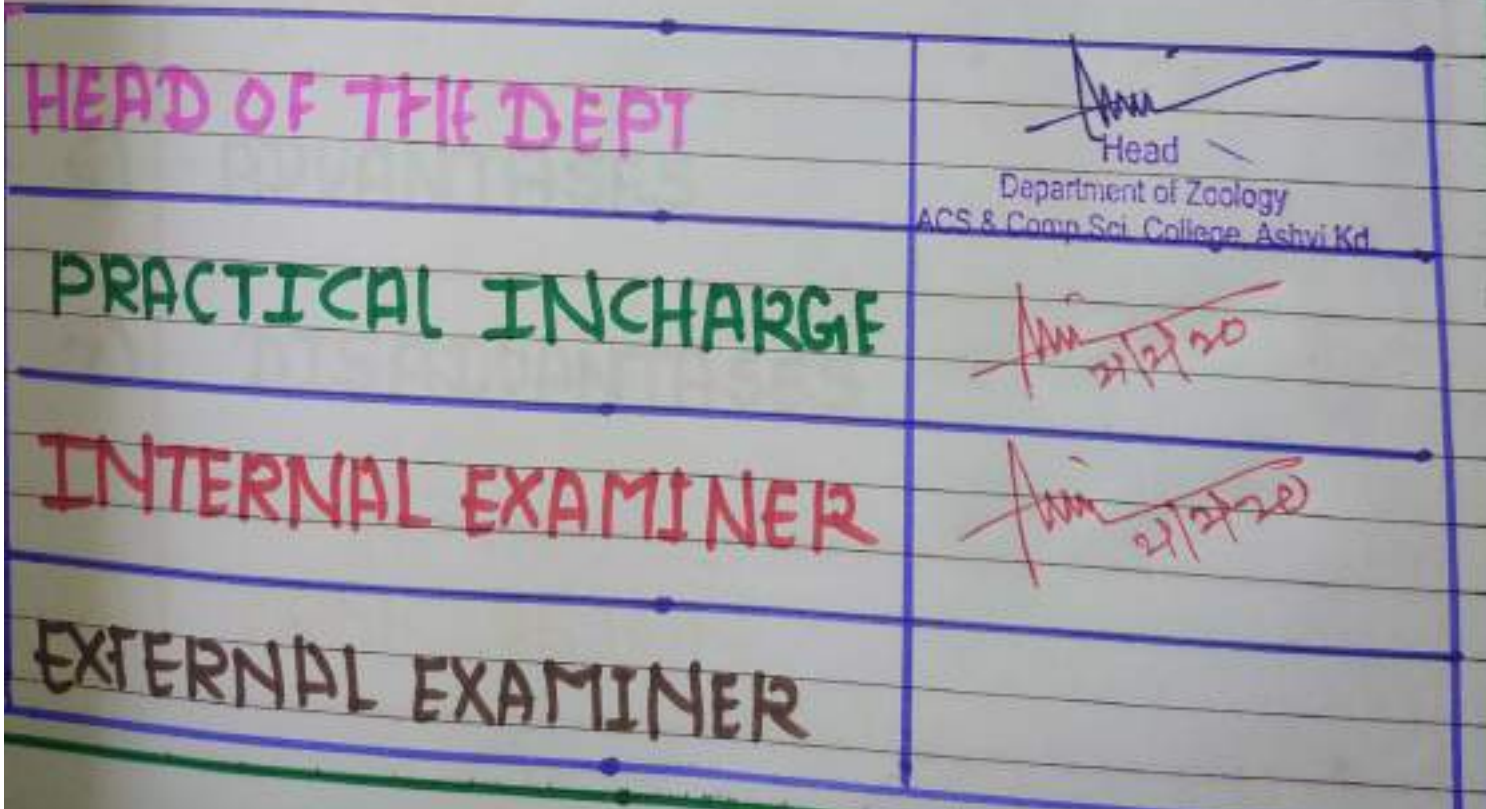 HEAD OF THE DEPT
Head
Department of Zoology
ACS & Comp.Sci. College, Ashvi Kd.
PRACTICAL INCHARGE
INTERNAL EXAMINER
EXTERNAL EXAMINER